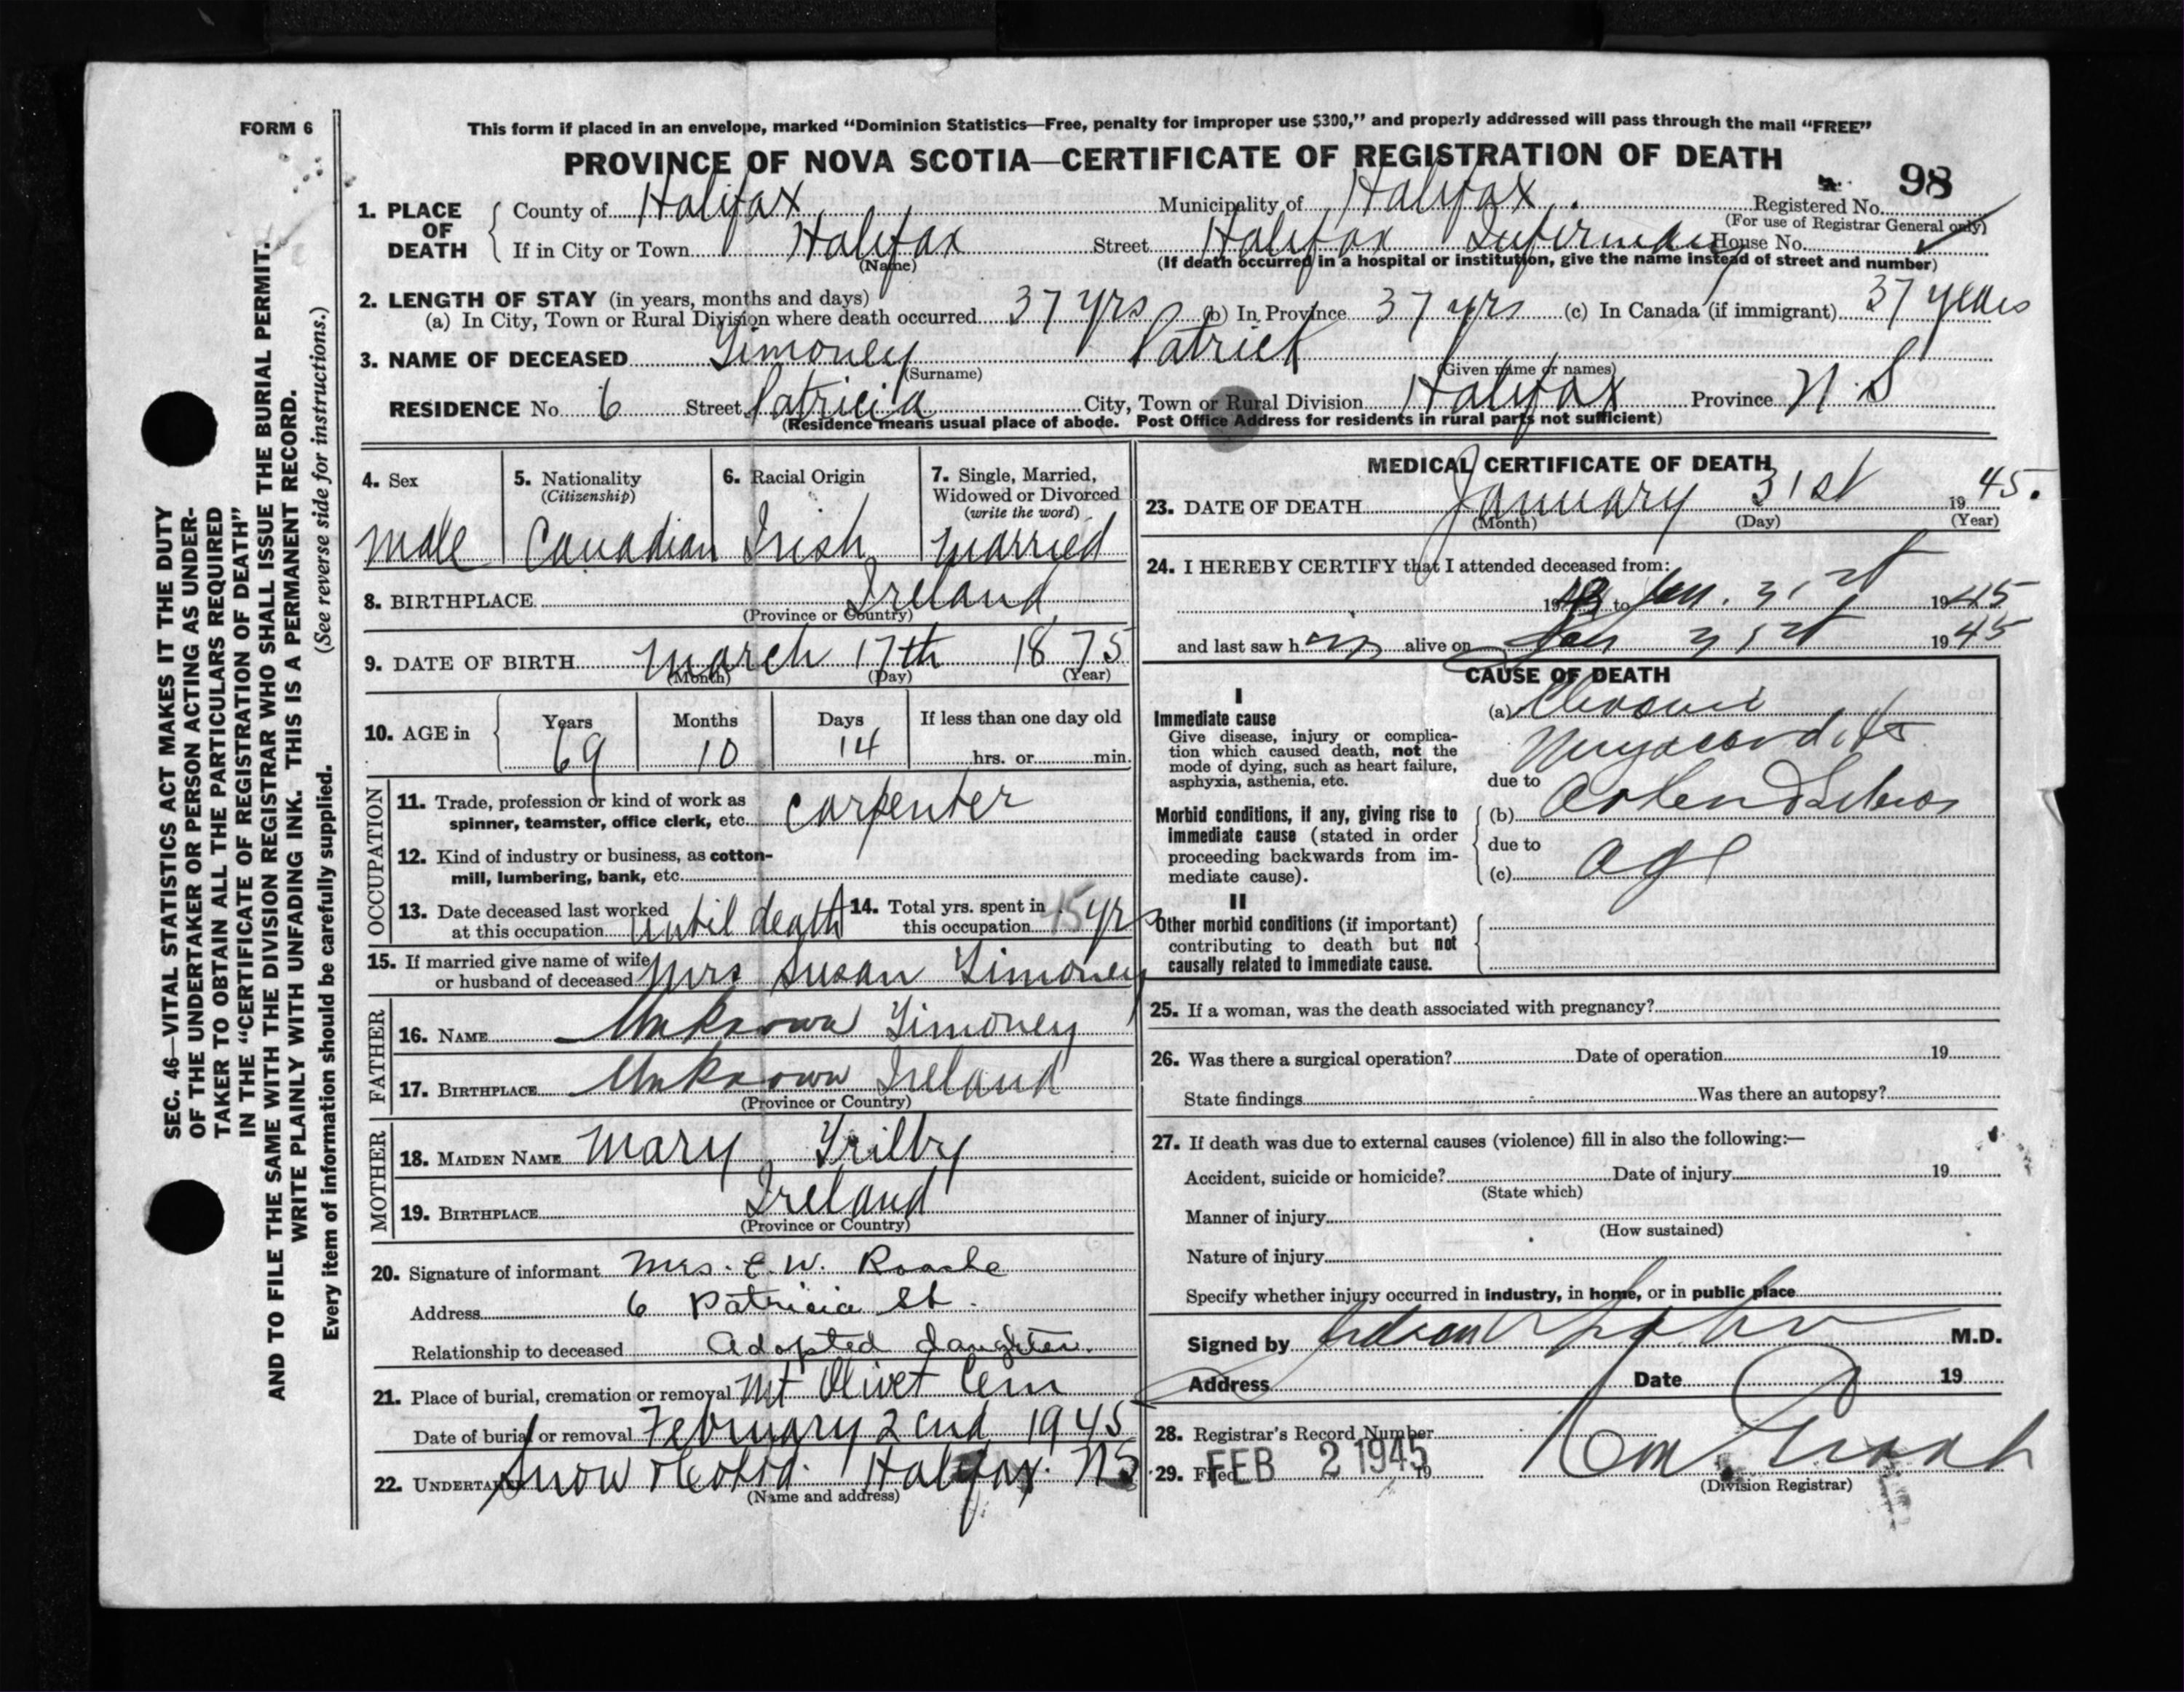 FORM 6
This form if placed in an envelope, marked “Dominion Statistics—Free, penalty for improper use $300,” and properly addressed will pass through the mail “FREE”
PROVINCE OF NOVA SCOTIA—CERTIFICATE OF REGISTRATION OF DEATH
98
1. PLACE OF DEATH
County of Halifax Municipality of Halifax Registered No.
(For use of Registrar General only)
If in City or Town Halifax Street Halifax Infirmary House No.
(Name) (If death occurred in a hospital or institution, give the name instead of street and number)
2. LENGTH OF STAY (in years, months and days)
(a) In City, Town or Rural Division where death occurred 37 yrs (b) In Province 37 yrs (c) In Canada (if immigrant) 37 years
3. NAME OF DECEASED Timoney Patrick
(Surname) (Given name or names)
RESIDENCE No. 6 Street Patricia City, Town or Rural Division Halifax Province N.S
(Residence means usual place of abode. Post Office Address for residents in rural parts not sufficient)
4. Sex
male
5. Nationality
(Citizenship)
Canadian
6. Racial Origin
Irish
7. Single, Married,
Widowed or Divorced
(write the word)
married
8. BIRTHPLACE Ireland
(Province or Country)
9. DATE OF BIRTH March 17th 1875
(Month) (Day) (Year)
10. AGE in
Years Months Days If less than one day old
69 10 14 hrs. or min.
OCCUPATION
11. Trade, profession or kind of work as
spinner, teamster, office clerk, etc. Carpenter
12. Kind of industry or business, as cotton-
mill, lumbering, bank, etc.
13. Date deceased last worked
at this occupation until death
14. Total yrs. spent in
this occupation 45 yrs
15. If married give name of wife
or husband of deceased Mrs Susan Timoney
FATHER
16. NAME Unknown Timoney
17. BIRTHPLACE Unknown Ireland
(Province or Country)
MOTHER
18. MAIDEN NAME Mary
19. BIRTHPLACE Ireland
(Province or Country)
20. Signature of informant Mrs. E. W.
Address 6 Patricia St.
Relationship to deceased Adopted daughter.
21. Place of burial, cremation or removal Mt Olivet Cem
Date of burial or removal February 2cnd 1945
22. UNDERTAKER Snow & Co Ltd. Halifax. NS
(Name and address)
MEDICAL CERTIFICATE OF DEATH
23. DATE OF DEATH January 31st 1945.
(Month) (Day) (Year)
24. I HEREBY CERTIFY that I attended deceased from:
19 to Jan. 31st 1945
and last saw him alive on Jan 31st 1945
CAUSE OF DEATH
I
Immediate cause
Give disease, injury or complica-
tion which caused death, not the
mode of dying, such as heart failure,
asphyxia, asthenia, etc.
(a) Chronic
Myocarditis
due to
Morbid conditions, if any, giving rise to
immediate cause (stated in order
proceeding backwards from im-
mediate cause).
(b)
due to
(c) age
II
Other morbid conditions (if important)
contributing to death but not
causally related to immediate cause.
25. If a woman, was the death associated with pregnancy?
26. Was there a surgical operation? Date of operation 19
State findings Was there an autopsy?
27. If death was due to external causes (violence) fill in also the following:—
Accident, suicide or homicide? Date of injury 19
(State which)
Manner of injury
(How sustained)
Nature of injury
Specify whether injury occurred in industry, in home, or in public place
Signed by M.D.
Address Date 19
28. Registrar's Record Number
29. Filed FEB 2 1945 19
(Division Registrar)
SEC. 46—VITAL STATISTICS ACT MAKES IT THE DUTY
OF THE UNDERTAKER OR PERSON ACTING AS UNDER-
TAKER TO OBTAIN ALL THE PARTICULARS REQUIRED
IN THE “CERTIFICATE OF REGISTRATION OF DEATH”
AND TO FILE THE SAME WITH THE DIVISION REGISTRAR WHO SHALL ISSUE THE BURIAL PERMIT.
WRITE PLAINLY WITH UNFADING INK. THIS IS A PERMANENT RECORD.
Every item of information should be carefully supplied. (See reverse side for instructions.)